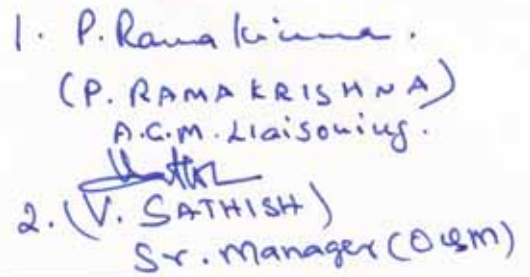 1. P. Rama krishna.
(P. RAMAKRISHNA)
A.G.M. Liaisoning.
2. (V. SATHISH)
Sr. Manager (O&M)